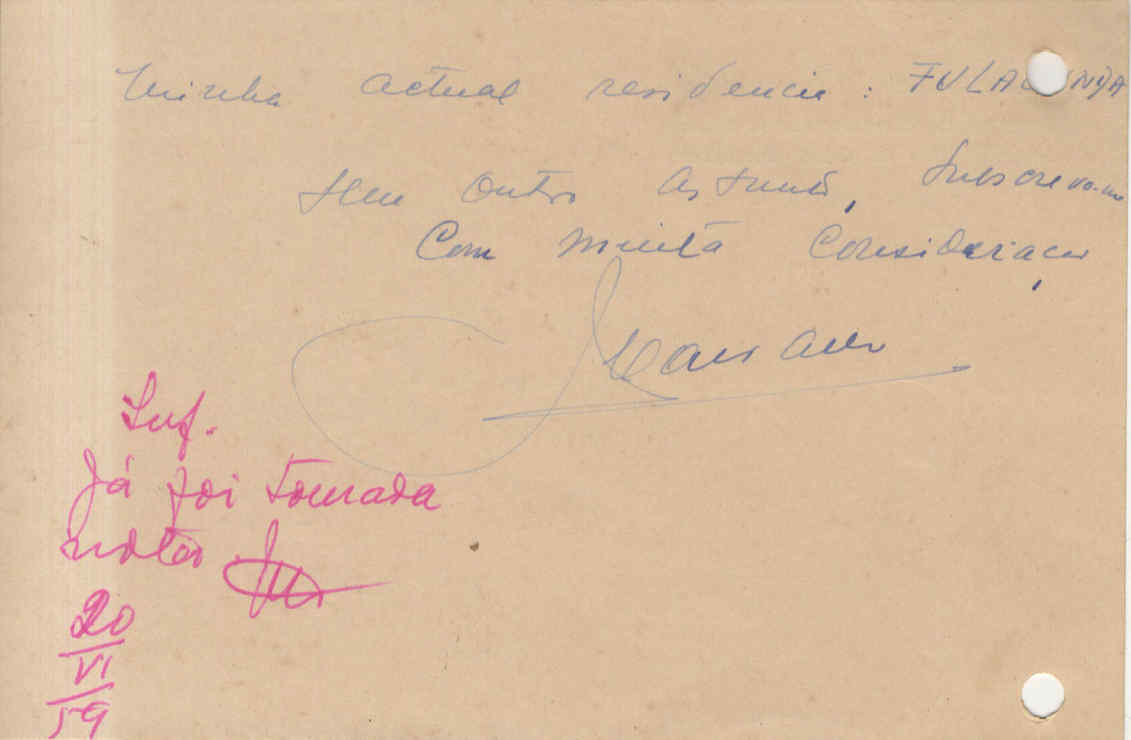 Minha actual residencia : FULACUNDA
Sem outro assunto, subscrevo-me
Com muita Consideração,
Inf.
Já foi tomada
nota
20
VI
59